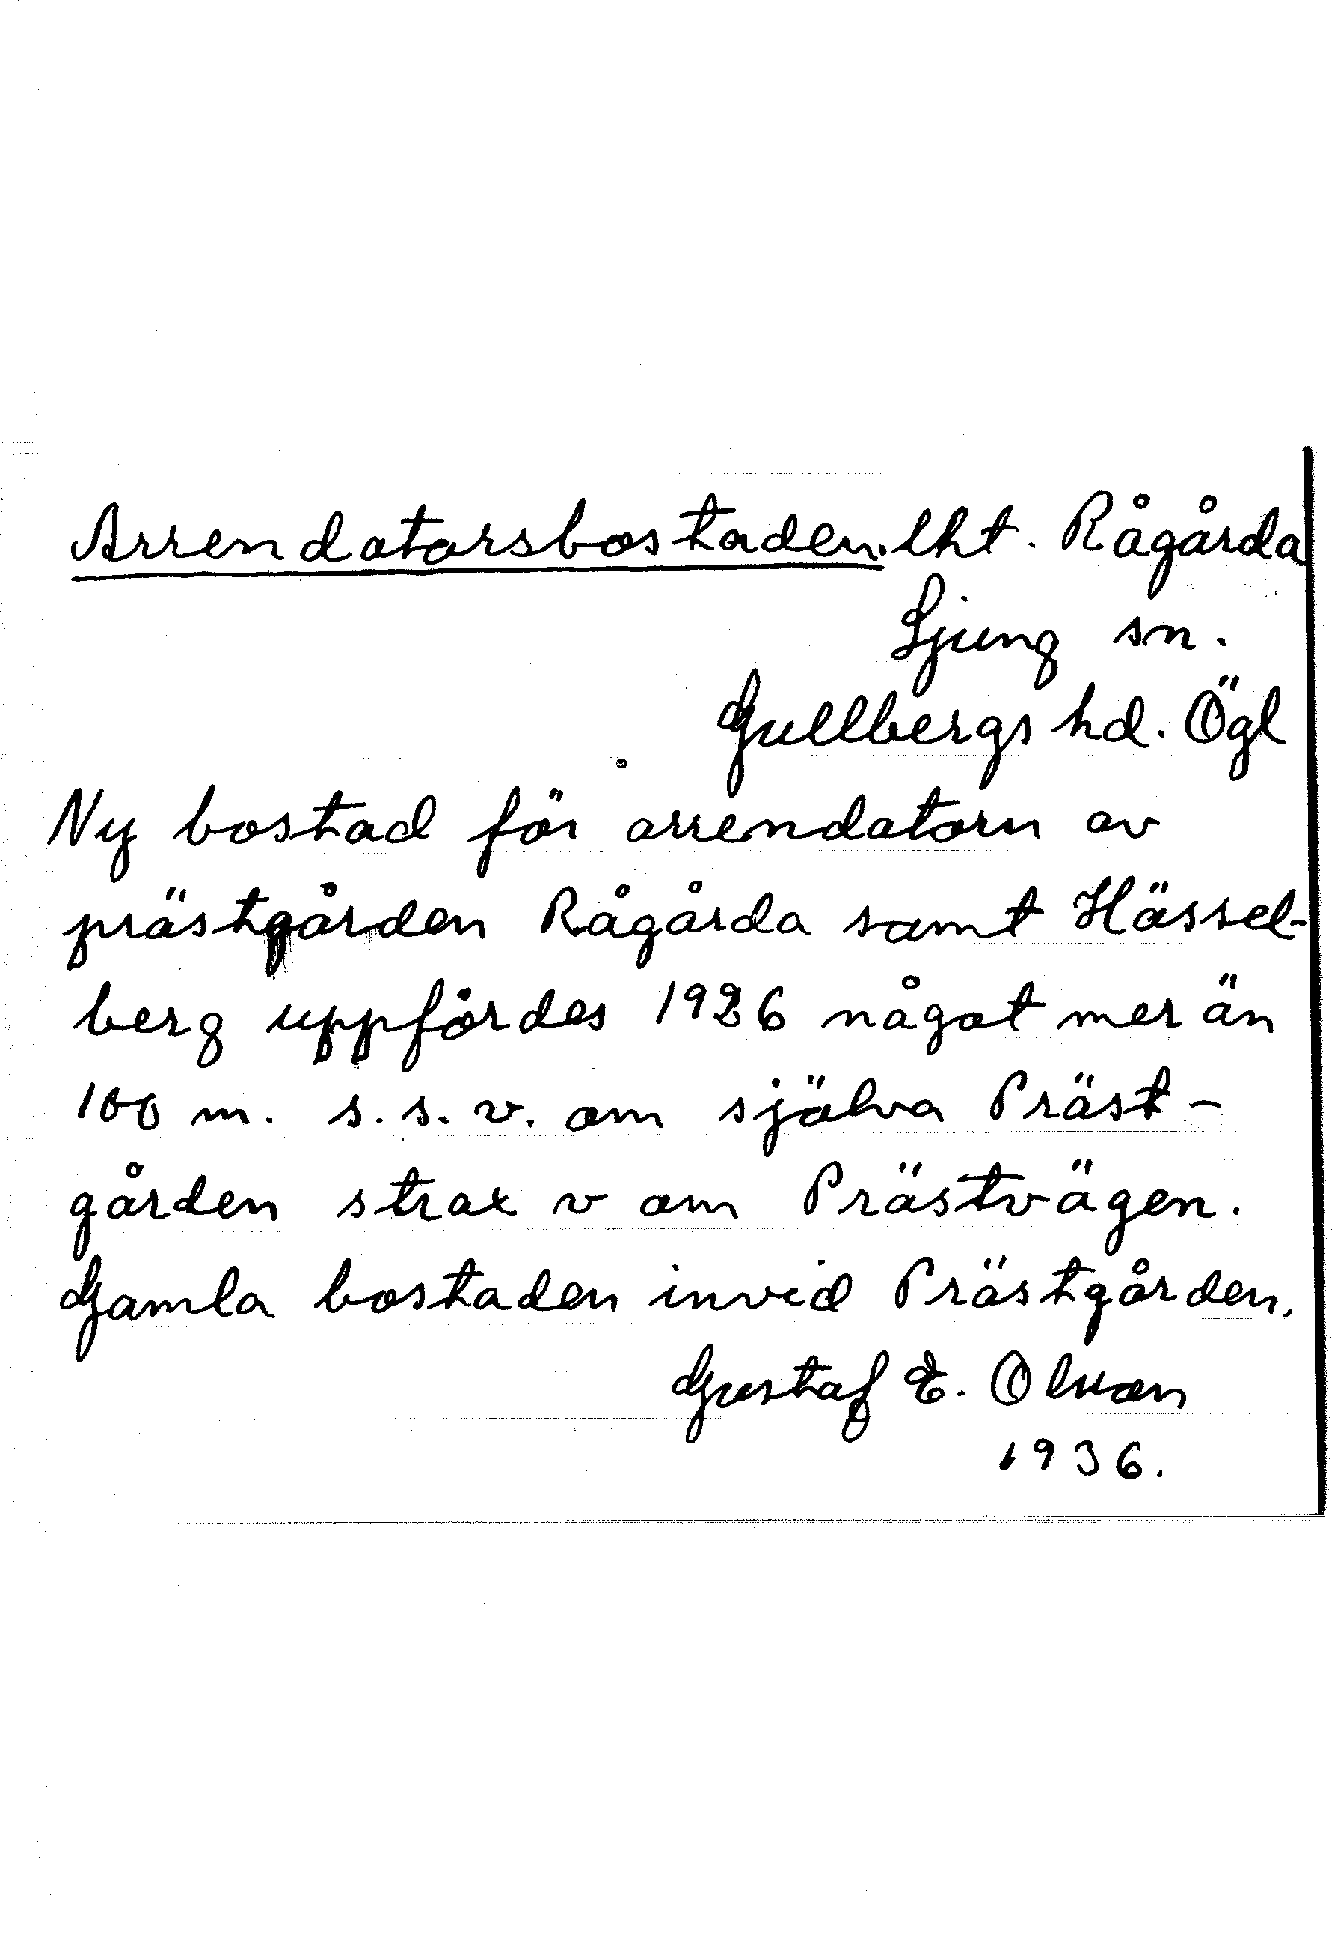 Arrendatorsbostaden. lht. Rågårda
Ljung sn.
Gullbergs hd. Ögl
Ny bostad för arrendatorn av
prästgården Rågårda samt Hässel-
berg uppfördes 1926 något mer än
100 m. s. s. v. om själva Präst-
gården strax v om Prästvägen.
Gamla bostaden invid Prästgården.
Gustaf E.
1936.